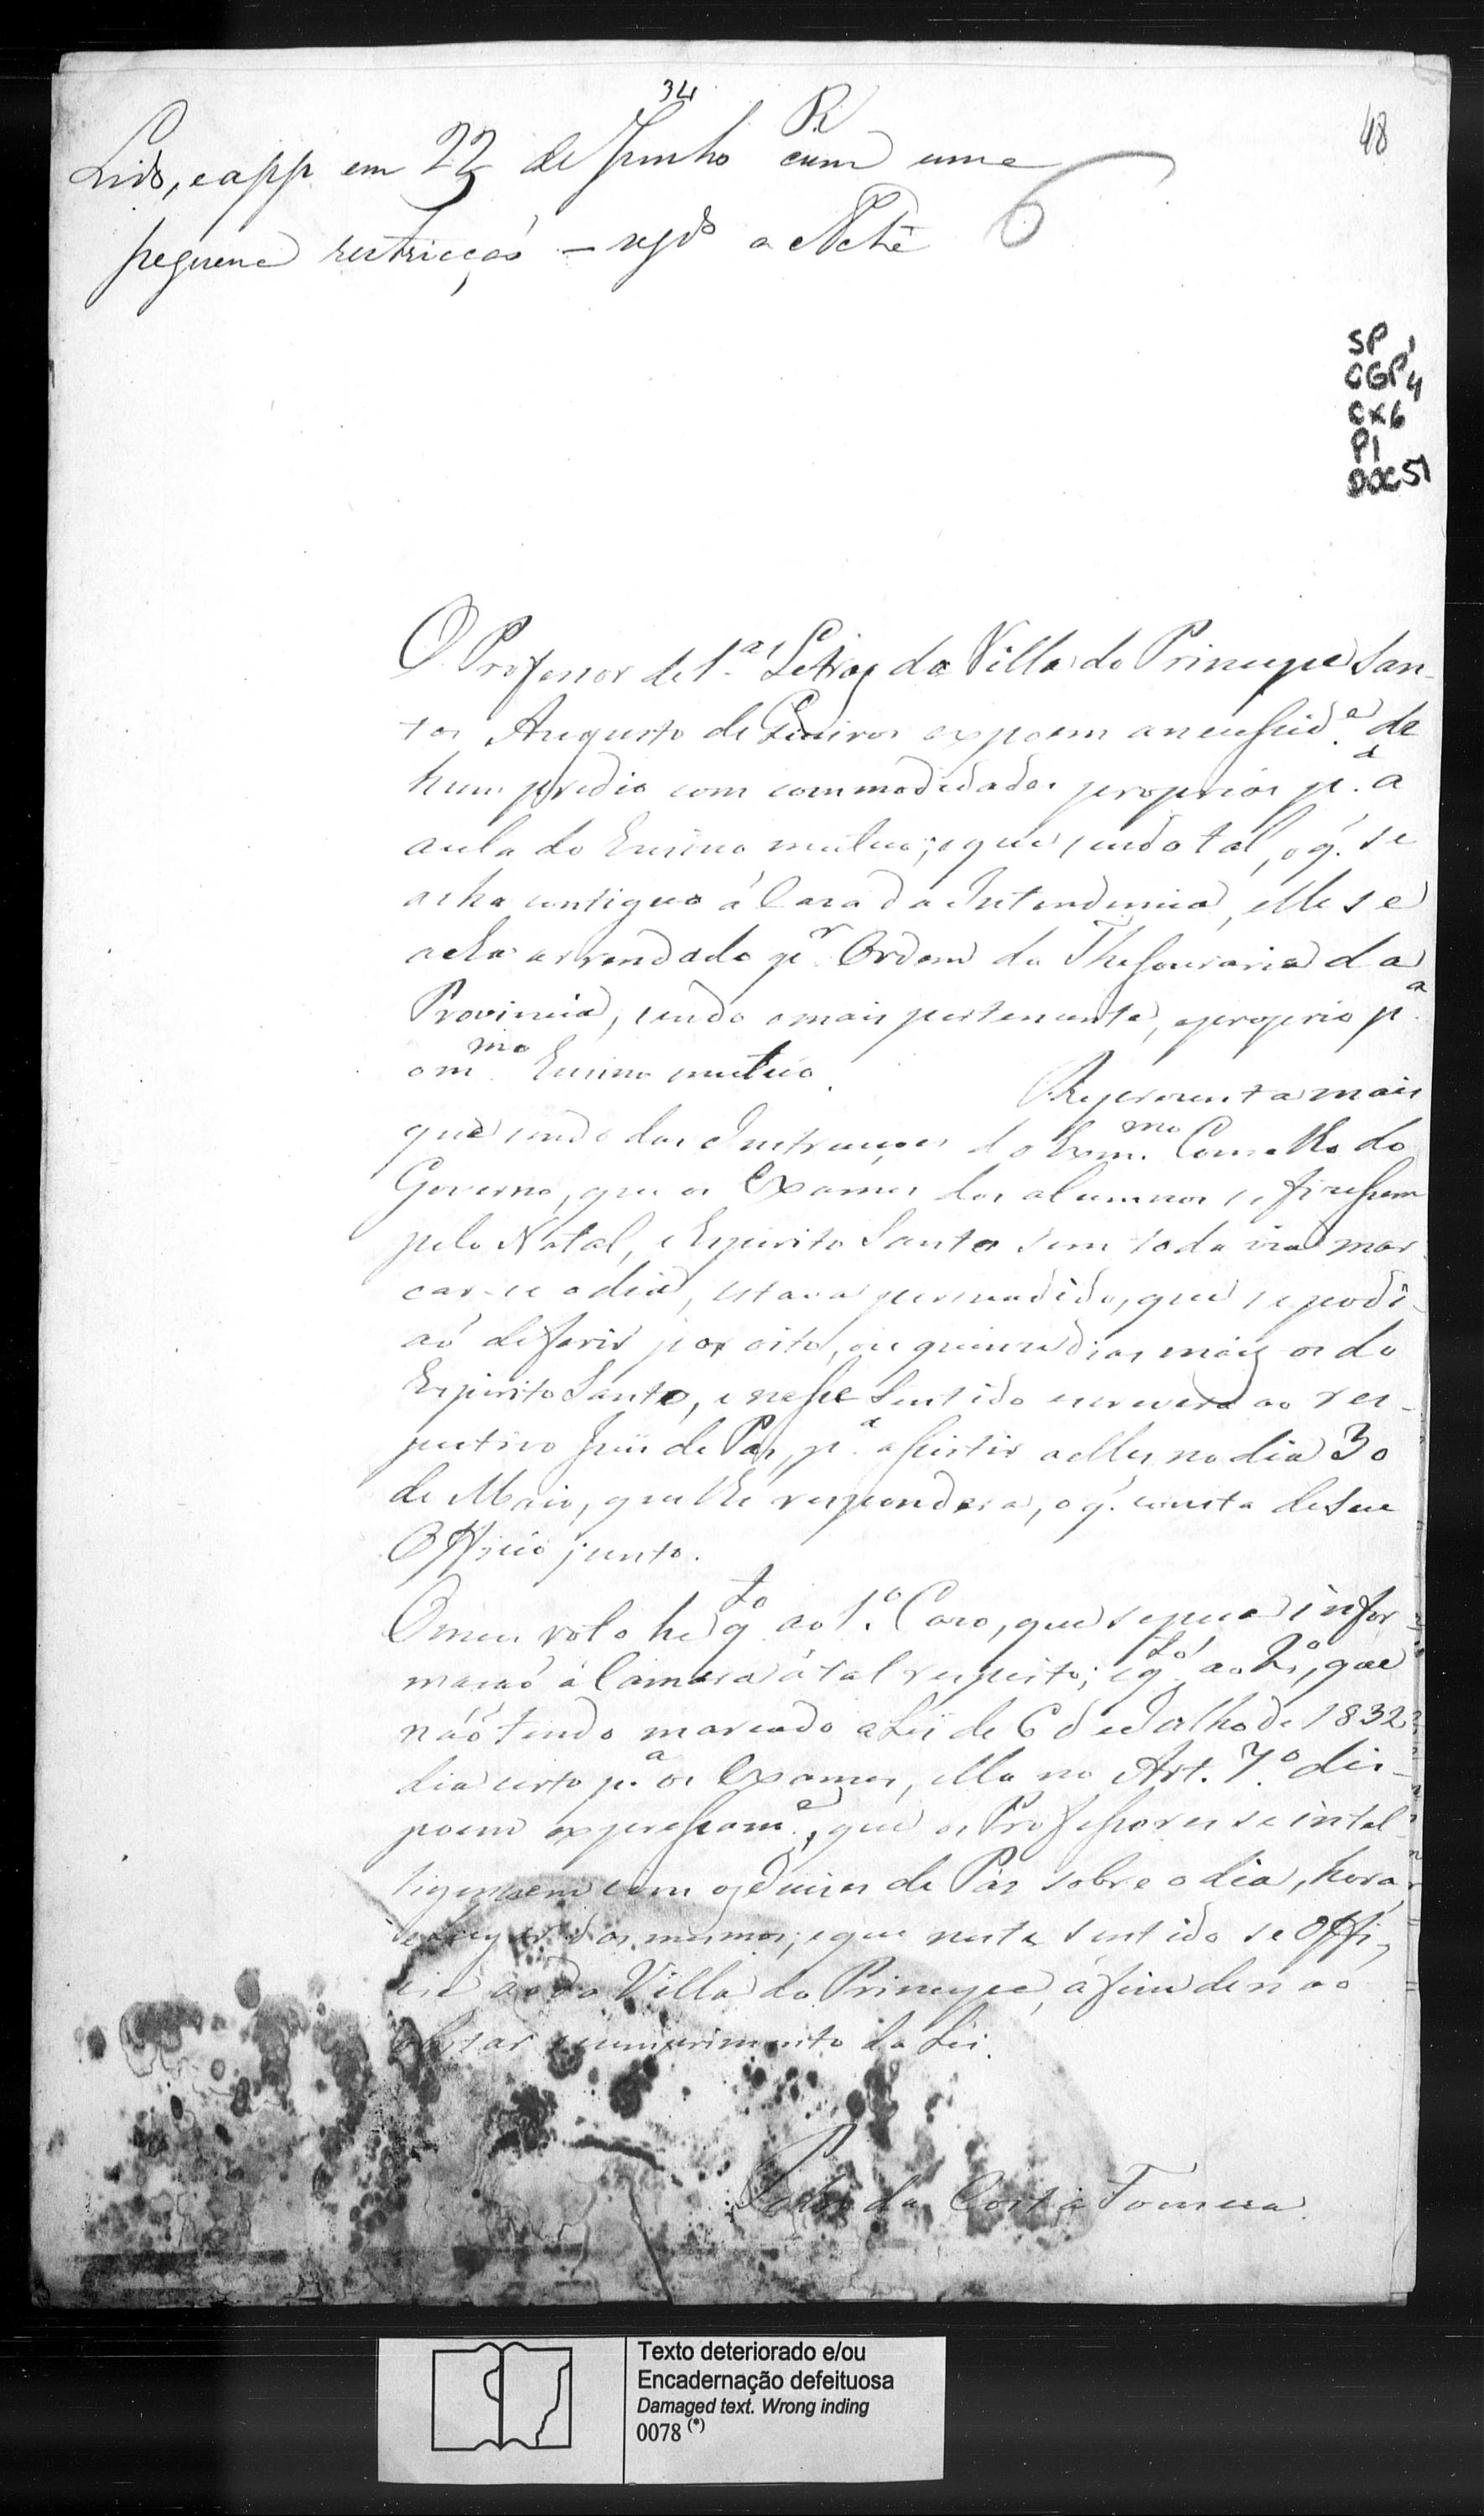 34
R
48
Lido, e app. em 22 de Junho com uma
pequena restricçaõ — rejdo a Acta
6
SP 1
CGP 4
CX 6
P1
DOC 51
O Professor de 1.as Letras da Villa do Principe San-
tos Augusto de Queiros expoem a necessid.e de
hum predio com commodidades proprias p.a a
aula do Ensino mutuo; e que sendo tal, o q. se
acha contiguo á Casa da Intendencia, elle se
acha arrendado p.r Ordem da Thesouraria da
Provincia, sendo o mais pertencente, e proprio p.a
o m.mo Ensino mutuo.
Representa mais
que sendo das Instrucções do Exm.mo Conselho do
Governo, que os Exames dos alumnos se fizessem
pelo Natal, e Espirito Santo sem toda via mar
car-se o dia, estava persuadido, que se podi-
aõ deferir por oito, ou quinze dias mais os do
Espirito Santo, e nesse sentido escrevera ao res-
pectivo Juiz de Pás, p.a assistir a elles no dia 30
de Maio, que lhe respondera, o q. consta de seu
Officio junto.
O meu voto he q.to ao 1.o Caso, que se peça infor
maçaõ á Camara á tal respeito; e q.to ao 2.o, que
náõ tendo marcado a Lei de 6 de Julho de 1832
dia certo p.a os Exames, ella no Art. 7.o dis-
poem expressam.e, que os Professores se intel-
ligenciem com os Juizes de Pás sobre o dia, hora,
e lugar dos mesmos; e que neste sentido se Offi-
cie ao da Villa do Principe, á fim de n aõ
obstar o cumprimento da Lei.
Pedro da Costa Fonseca
Texto deteriorado e/ou
Encadernação defeituosa
Damaged text. Wrong inding
0078 (*)